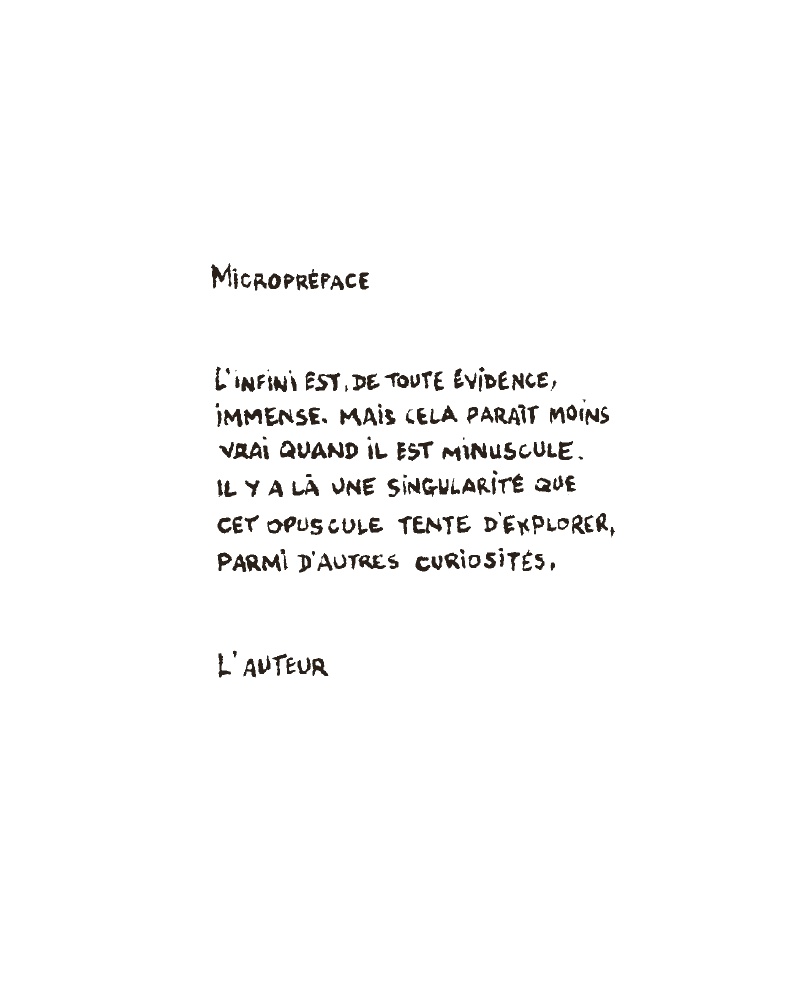 MICROPRÉFACE
L'INFINI EST, DE TOUTE ÉVIDENCE,
IMMENSE. MAIS CELA PARAÎT MOINS
VRAI QUAND IL EST MINUSCULE.
IL Y A LÀ UNE SINGULARITÉ QUE
CET OPUSCULE TENTE D'EXPLORER,
PARMI D'AUTRES CURIOSITÉS.
L'AUTEUR